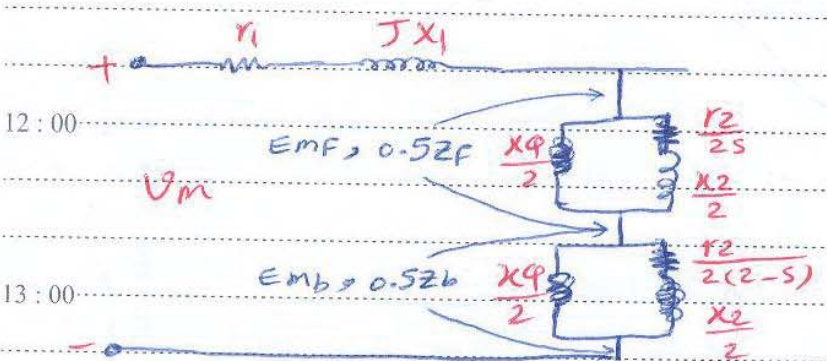 r1 JX1
+
12:00
Emf, 0.5Zf xφ/2 r2/2s
x2/2
Vm
Emb, 0.5Zb xφ/2 r2/2(2-s)
13:00
x2/2
-